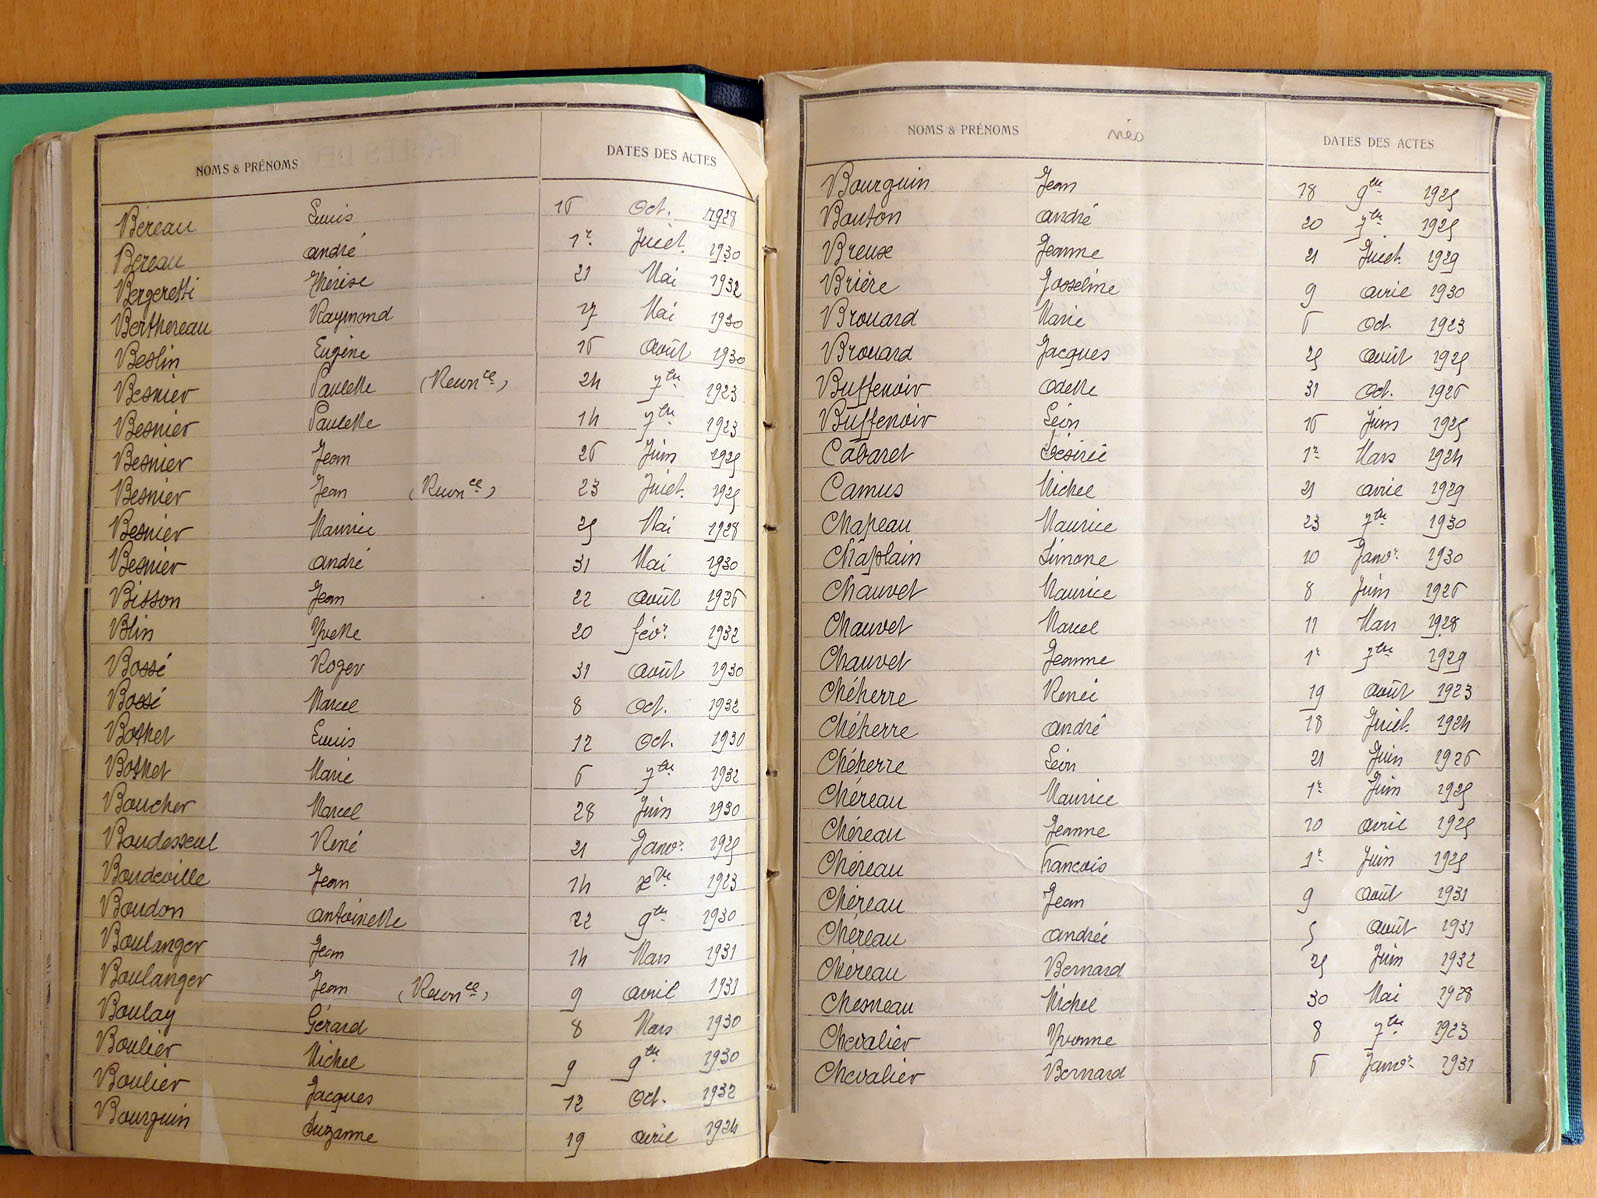 NOMS & PRÉNOMS DATES DES ACTES
Béreau Louis 16 Oct. 1928
Béreau André 1er Juillet 1930
Bergeretti Thérèse 21 Mai 1932
Berthereau Raymond 27 Mai 1930
Beslin Eugène 16 Août 1930
Besnier Paulette (Reconce) 24 7bre 1923
Besnier Paulette 14 7bre 1923
Besnier Jean 26 Juin 1925
Besnier Jean (Reconce) 23 Juillet 1925
Besnier Maurice 25 Mai 1928
Besnier André 31 Mai 1930
Bisson Jean 22 Août 1926
Blin Yvette 20 Févr. 1932
Bossé Roger 31 Août 1930
Bossé Marcel 8 Oct. 1932
Bothet Louis 12 Oct. 1930
Bothet Marie 6 7bre 1932
Boucher Marcel 28 Juin 1930
Baudesseul René 21 Janvr. 1925
Boudeville Jean 14 Xbre 1923
Boudon Antoinette 22 9bre 1930
Boulanger Jean 14 Mars 1931
Boulanger Jean (Reconce) 9 Avril 1931
Boulay Gérard 8 Mars 1930
Boulier Michel 9 9bre 1930
Boulier Jacques 12 Oct. 1932
Bourguin Suzanne 19 Avril 1924
NOMS & PRÉNOMS nés DATES DES ACTES
Bourguin Jean 18 9bre 1925
Bouton André 20 7bre 1925
Breux Jeanne 21 Juillet 1929
Brière Josselme 9 Avril 1930
Brouard Marie 6 Oct. 1923
Brouard Jacques 25 Août 1925
Buffenoir Odette 31 Oct. 1926
Buffenoir Léon 16 Juin 1925
Cabaret Désirée 1er Mars 1924
Camus Michel 21 Avril 1929
Chapeau Maurice 23 7bre 1930
Chaplain Simone 10 Janvr. 1930
Chauvet Maurice 8 Juin 1926
Chauvet Marcel 11 Mars 1928
Chauvet Jeanne 1er 7bre 1929
Chéherre Renée 19 Août 1923
Chéherre André 18 Juillet 1924
Chéherre Léon 21 Juin 1926
Chéreau Maurice 1er Juin 1925
Chéreau Jeanne 10 Avril 1925
Chéreau Francois 1er Juin 1925
Chéreau Jean 9 Août 1931
Chéreau Andrée 5 Août 1931
Chéreau Bernard 25 Juin 1932
Chesneau Michel 30 Mai 1928
Chevalier Yvonne 8 7bre 1923
Chevalier Bernard 6 Janvr. 1931